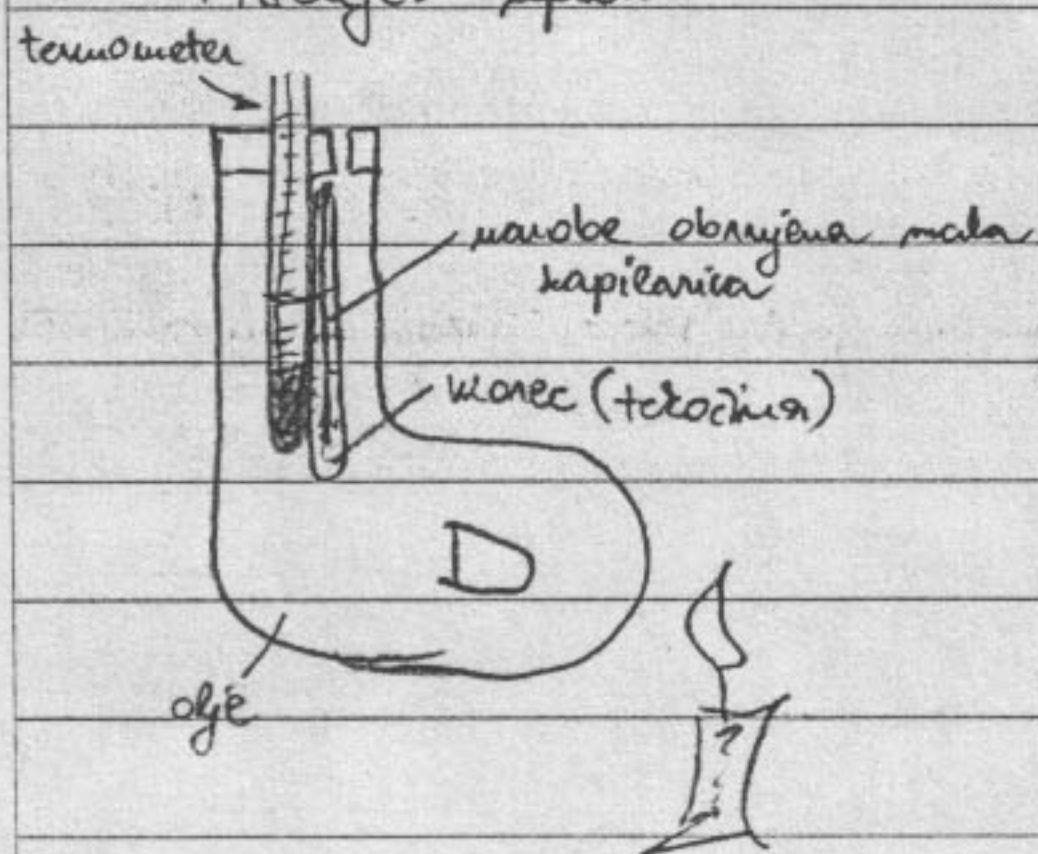 termometer
narobe obrnjena mala
kapilarica
vzorec (tekočina)
olje